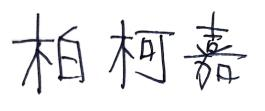 柏柯嘉